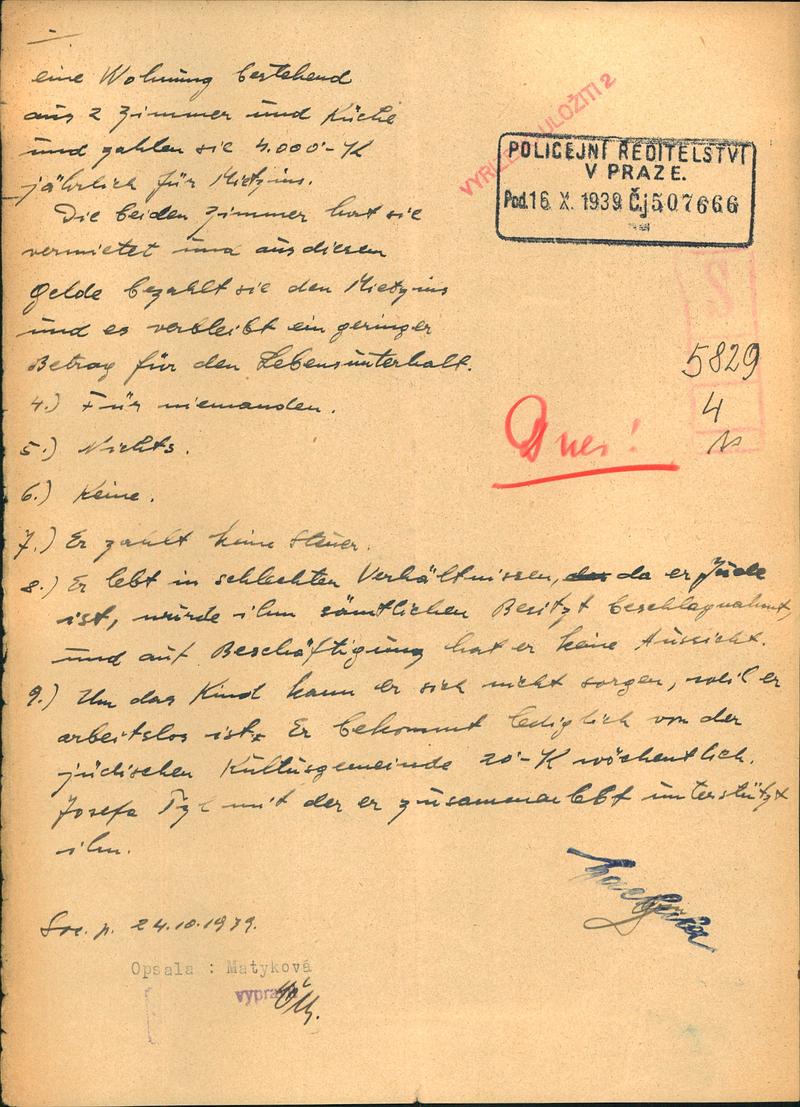 eine Wohnung bestehend
aus 2 Zimmer und Küche
und zahlen sie 4.000'-K
jährlich für Mietzins.
Die beiden Zimmer hat sie
vermietet und aus diesen
Gelde bezahlt sie den Mietzins
und es verbleibt ein geringer
Betrag für den Lebensunterhalt.
4.) Für niemanden.
5.) Nichts.
6.) Keine.
7.) Er zahlt keine Steuer.
8.) Er lebt in schlechten Verhältnissen, da er Jude
ist, wurde ihm sämtlichen Besitzt beschlagnahmt,
und auf Beschäftigung hat er keine Aussicht.
9.) Um das Kind kann er sich nicht sorgen, weil er
arbeitslos ist. Er bekommt lediglich von der
jüdischen Kultusgemeinde 20'-K wöchentlich.
Josefa Tyl mit der er zusammenlebt unterstützt
ihn.
24.10.1939.
Opsala : Matyková
ULOŽITI 2
POLICEJNÍ ŘEDITELSTVÍ
V PRAZE.
Pod. 16 X. 1939 Čj 507666
S
5829
4
Dnes!